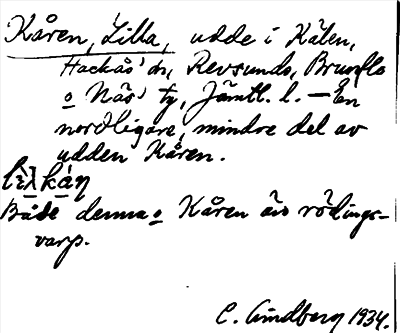 Kåren, Lilla, udde i Kälen,
Hackås' o, Revsunds, Brunflo
o Näs' ty, Jämtl. l. — En
nordligare, mindre del av
udden Kåren.
Både denna o Kåren äro rödings-
varp.
C. Lindberg 1934.